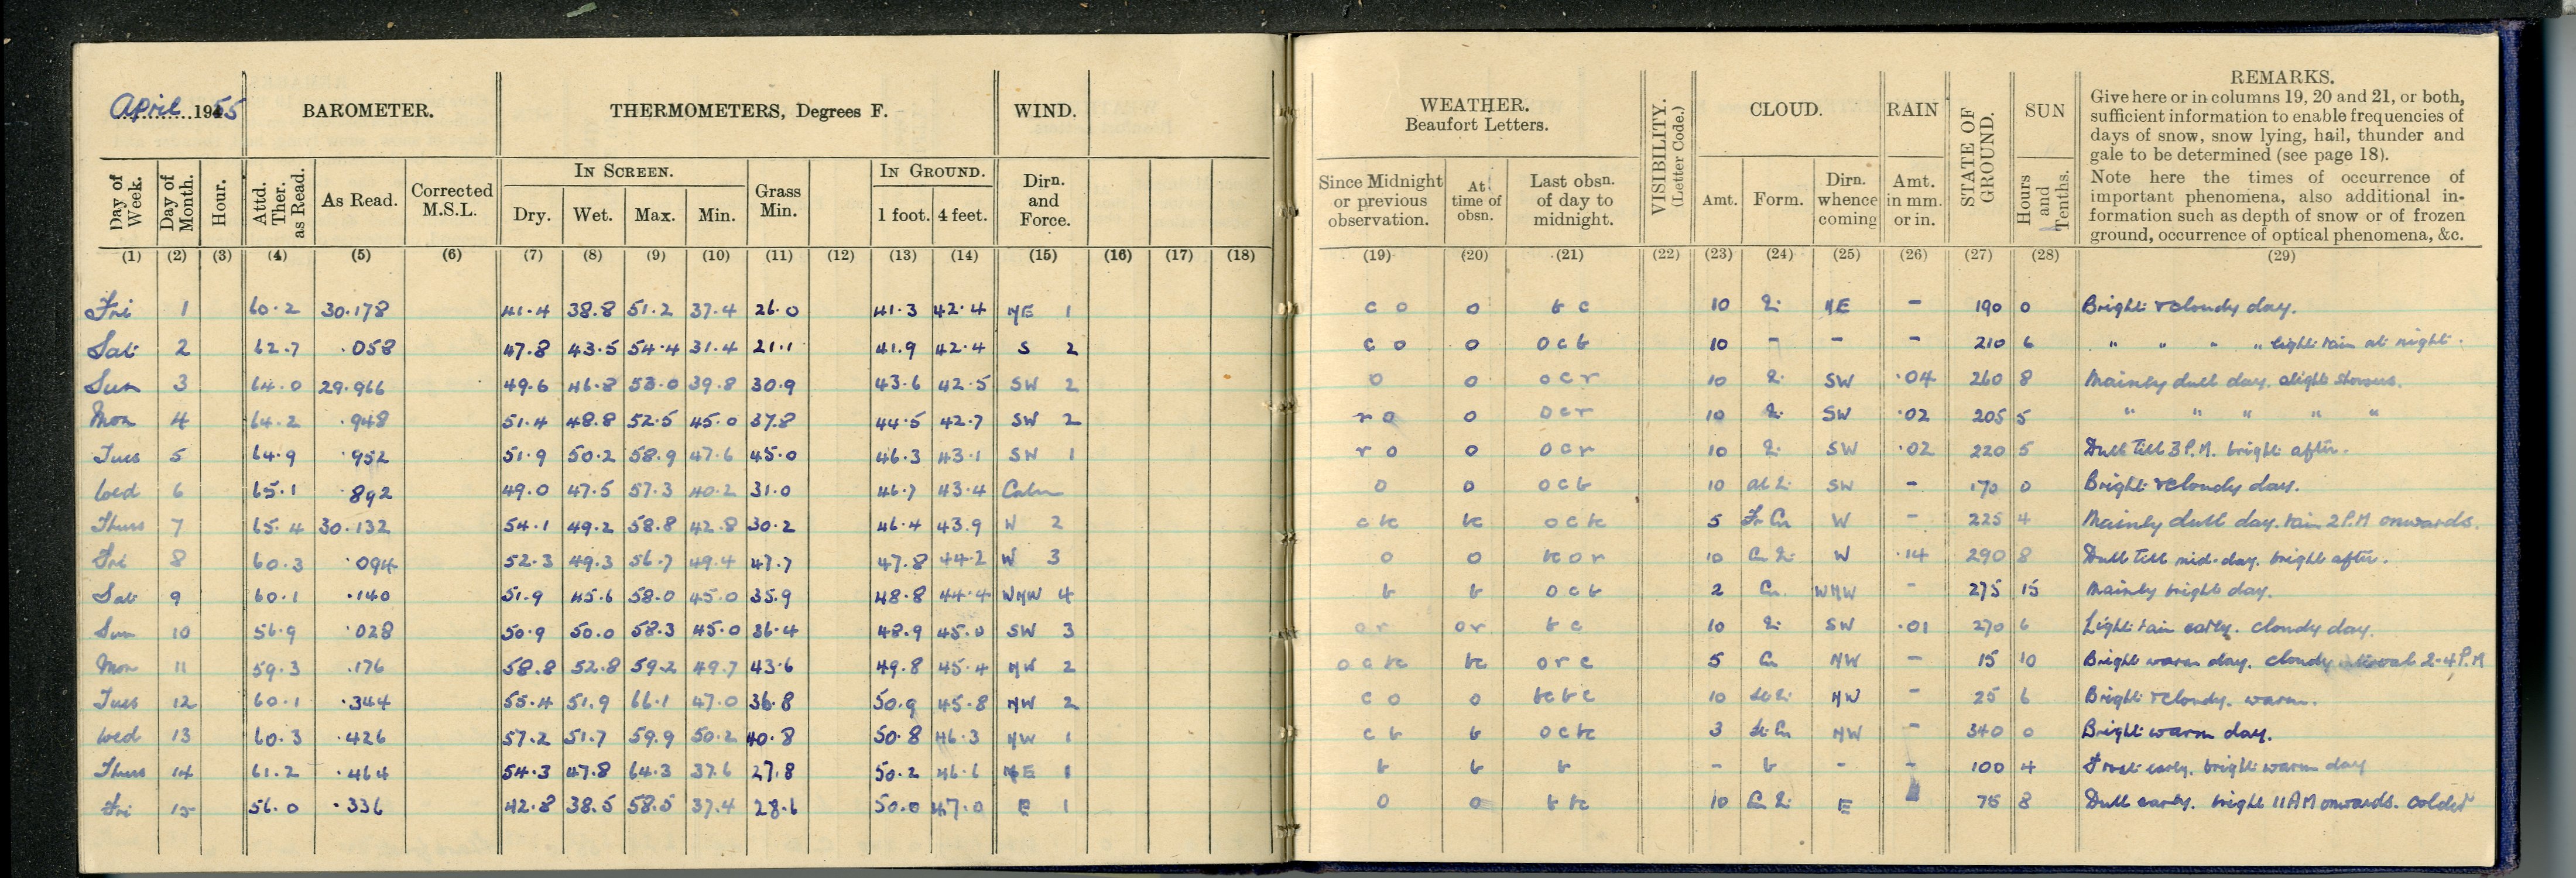 April 1955 BAROMETER. THERMOMETERS, Degrees F. WIND. WEATHER. Beaufort Letters. VISIBILITY. (Letter Code.) CLOUD. RAIN STATE OF GROUND. SUN REMARKS.
Give here or in columns 19, 20 and 21, or both,
sufficient information to enable frequencies of
days of snow, snow lying, hail, thunder and
gale to be determined (see page 18).
Note here the times of occurrence of
important phenomena, also additional in-
formation such as depth of snow or of frozen
ground, occurrence of optical phenomena, &c.
IN SCREEN. IN GROUND.
Day of Week. Day of Month. Hour. Attd. Ther. as Read. As Read. Corrected M.S.L. Dry. Wet. Max. Min. Grass Min. 1 foot. 4 feet. Dirn. and Force. Since Midnight or previous observation. At time of obsn. Last obsn. of day to midnight. Amt. Form. Dirn. whence coming Amt. in mm. or in. Hours and Tenths.
(1) (2) (3) (4) (5) (6) (7) (8) (9) (10) (11) (12) (13) (14) (15) (16) (17) (18) (19) (20) (21) (22) (23) (24) (25) (26) (27) (28) (29)
Fri 1 60.2 30.178 41.4 38.8 51.2 37.4 26.0 41.3 42.4 NE 1 c o o b c 10 NE - 190 0 Bright & cloudy day.
Sat 2 62.7 .058 47.8 43.5 54.4 31.4 21.1 41.9 42.4 S 2 c o o o c b 10 - - - 210 6 " " " " light rain at night.
Sun 3 64.0 29.966 49.6 46.8 53.0 39.8 30.9 43.6 42.5 SW 2 o o o c r 10 SW .04 260 8 Mainly dull day. slight showers.
Mon 4 64.2 .948 51.4 48.8 52.5 45.0 37.8 44.5 42.7 SW 2 r o o o c r 10 SW .02 205 5 " " " " "
Tues 5 64.9 .952 51.9 50.2 58.9 47.6 45.0 46.3 43.1 SW 1 r o o o c r 10 SW .02 220 5 Dull till 3 P.M. bright after.
Wed 6 65.1 .892 49.0 47.5 57.3 40.2 31.0 46.7 43.4 Calm o o o c b 10 SW - 170 0 Bright & cloudy day.
Thurs 7 65.4 30.132 54.1 49.2 58.8 42.8 30.2 46.4 43.9 W 2 c bc bc o c bc 5 Fr Cu W - 225 4 Mainly dull day. rain 2 P.M onwards.
Fri 8 60.3 .094 52.3 49.3 56.7 49.4 47.7 47.8 44.2 W 3 o o bc o r 10 W .14 290 8 Dull till mid-day. bright after.
Sat 9 60.1 .140 51.9 45.6 58.0 45.0 35.9 48.8 44.4 WNW 4 b b o c b 2 Cu. WNW - 275 15 Mainly bright day.
Sun 10 56.9 .028 50.9 50.0 58.3 45.0 36.4 48.9 45.0 SW 3 o r o r b c 10 SW .01 270 6 Light rain early. cloudy day.
Mon 11 59.3 .176 58.8 52.8 59.2 49.7 43.6 49.8 45.4 NW 2 o c bc bc o r c 5 Cu NW - 15 10 Bright warm day. cloudy interval 2-4 P.M
Tues 12 60.1 .344 55.4 51.9 66.1 47.0 36.8 50.9 45.8 NW 2 c o o bc b c 10 NW - 25 6 Bright & cloudy. warm.
Wed 13 60.3 .426 57.2 51.7 59.9 50.2 40.8 50.8 46.3 NW 1 c b b o c bc 3 NW - 340 0 Bright warm day.
Thurs 14 61.2 .464 54.3 47.8 64.3 37.6 27.8 50.2 46.6 NE 1 b b b - b - - 100 4 Frost early. bright warm day
Fri 15 56.0 .336 42.8 38.5 58.5 37.4 28.6 50.0 47.0 E 1 o o b bc 10 E 75 8 Dull early. bright 11 AM onwards. colder